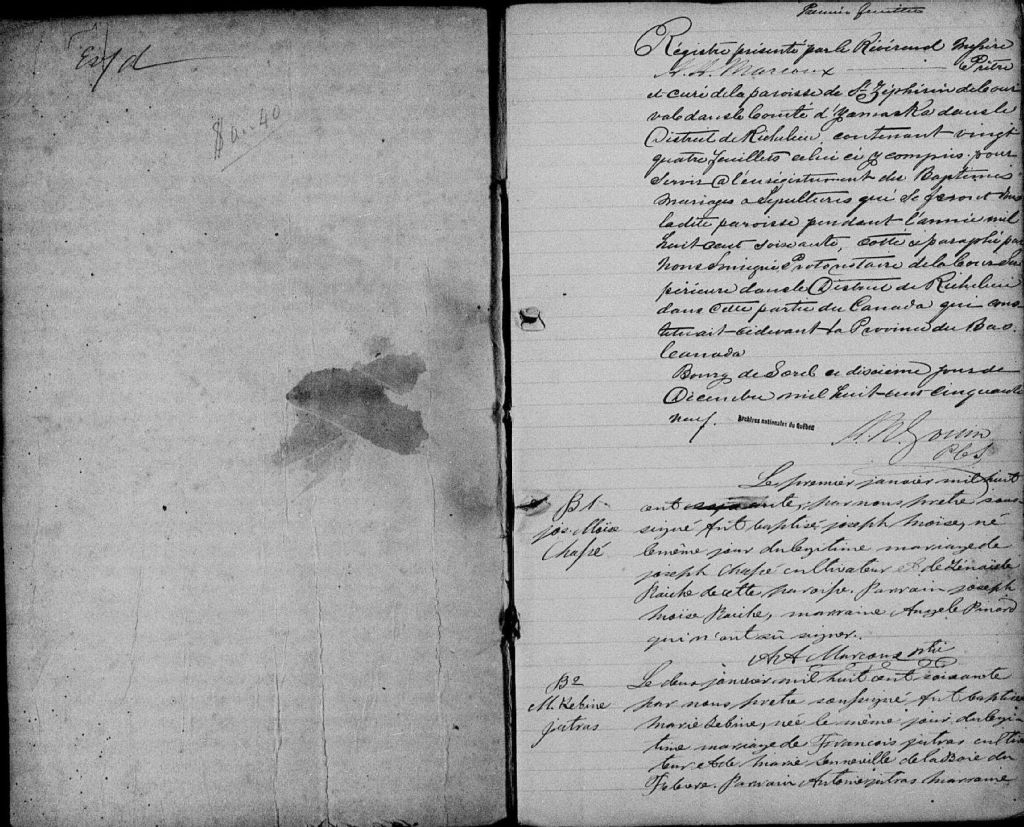 Esfd
$0.40
Premier feuillet
Régistre présenté par le Révérend Messire
A. A. Marcoux Prêtre
et curé de la paroisse de St Zéphirin de Cour
val dans le Comté d'Yamaska dans le
District de Richelieu contenant vingt
quatre feuillets celui ci y compris pour
servir à l'enrégistrement des Baptêmes
Mariages & Sépultures qui se feront dans
ladite paroisse pendant l'année mil
huit cent soixante, cotté & paraphé par
nous Soussigné Protonotaire de la Cour Su
périeure dans le District de Richelieu
dans cette partie du Canada qui cons
tituait cidevant la Province du Bas
Canada
Bourg de Sorel ce dixième jour de
Décembre mil huit cent cinquante
neuf.
Archives nationales du Québec
Gouin
P.C.S
Le premier janvier mil huit
B 1
jos. Moïse
Chafé
cent soixante, par nous prêtre sous
signé fut baptisé joseph Moise, né
le même jour du légitime mariage de
joseph Chafé cultivateur et de
de cette paroisse. Parrain joseph
Moise, marraine Angele Pinard
qui n'ont sû signer.
A A Marcoux ptre
B 2
M. Rebine
jutras
Le deux janvier mil huit cent soixante
par nous prêtre soussigné fut baptisé
Marie Rebine, née le même jour du légi
time mariage de Francois jutras cultiva
teur et de Marie de la Baie du
Febvre. Parrain Antoine jutras marraine